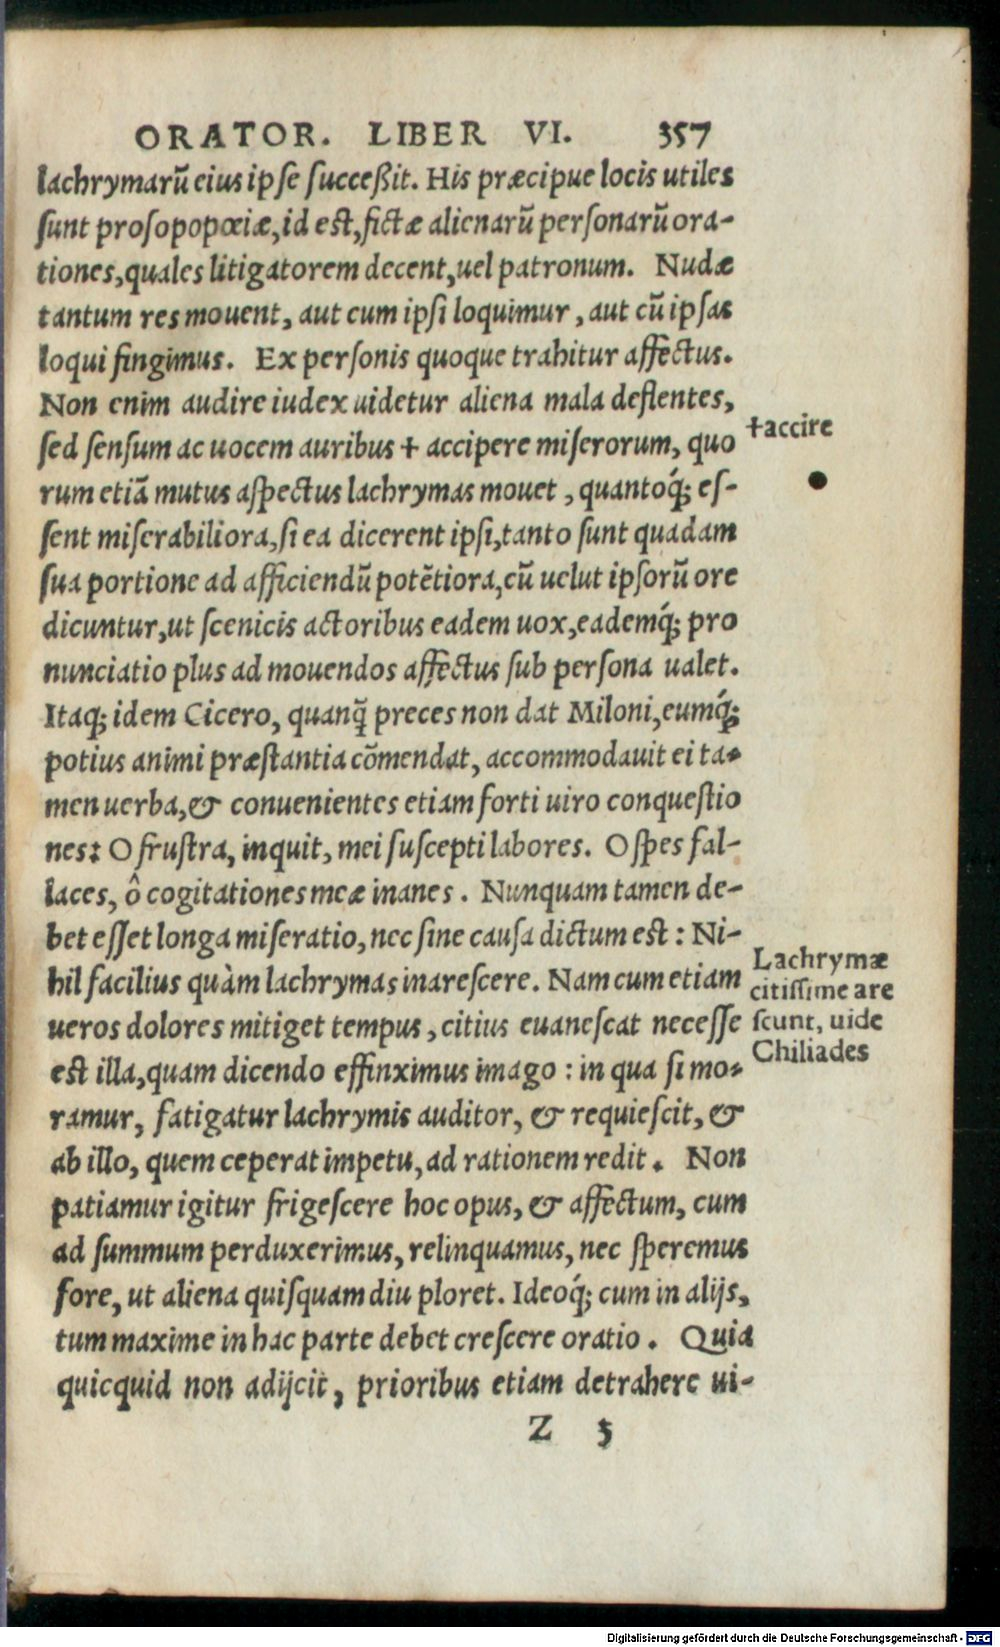 ORATOR. LIBER VI. 357
lachrymarũ eius ipse succeßit. His præcipue locis utiles
sunt prosopopœiæ, id est, fictæ alienarũ personarũ ora-
tiones, quales litigatorem decent, uel patronum. Nudæ
tantum res mouent, aut cum ipsi loquimur, aut cũ ipsas
loqui fingimus. Ex personis quoque trahitur affectus.
Non enim audire iudex uidetur aliena mala deflentes,
sed sensum ac uocem auribus + accipere miserorum, quo
+accire
rum etiã mutus aspectus lachrymas mouet, quantoq́; es-
sent miserabiliora, si ea dicerent ipsi, tanto sunt quadam
sua portione ad afficiendũ potẽtiora, cũ uelut ipsorũ ore
dicuntur, ut scenicis actoribus eadem uox, eademq́; pro
nunciatio plus ad mouendos affectus sub persona ualet.
Itaq; idem Cicero, quanq̃ preces non dat Miloni, eumq́;
potius animi præstantia cõmendat, accommodauit ei ta-
men uerba, & conuenientes etiam forti uiro conquestio
nes: O frustra, inquit, mei suscepti labores. O spes fal-
laces, ô cogitationes meæ inanes. Nunquam tamen de-
bet esset longa miseratio, nec sine causa dictum est: Ni-
hil facilius quàm lachrymas inarescere. Nam cum etiam
ueros dolores mitiget tempus, citius euanescat necesse
est illa, quam dicendo effinximus imago: in qua si mo-
ramur, fatigatur lachrymis auditor, & requiescit, &
Lachrymæ
citissime are
scunt, uide
Chiliades
ab illo, quem ceperat impetu, ad rationem redit. Non
patiamur igitur frigescere hoc opus, & affectum, cum
ad summum perduxerimus, relinquamus, nec speremus
fore, ut aliena quisquam diu ploret. Ideoq́; cum in alijs,
tum maxime in hac parte debet crescere oratio. Quia
quicquid non adijcit, prioribus etiam detrahere ui-
Z 3
Digitalisierung gefördert durch die Deutsche Forschungsgemeinschaft - DFG